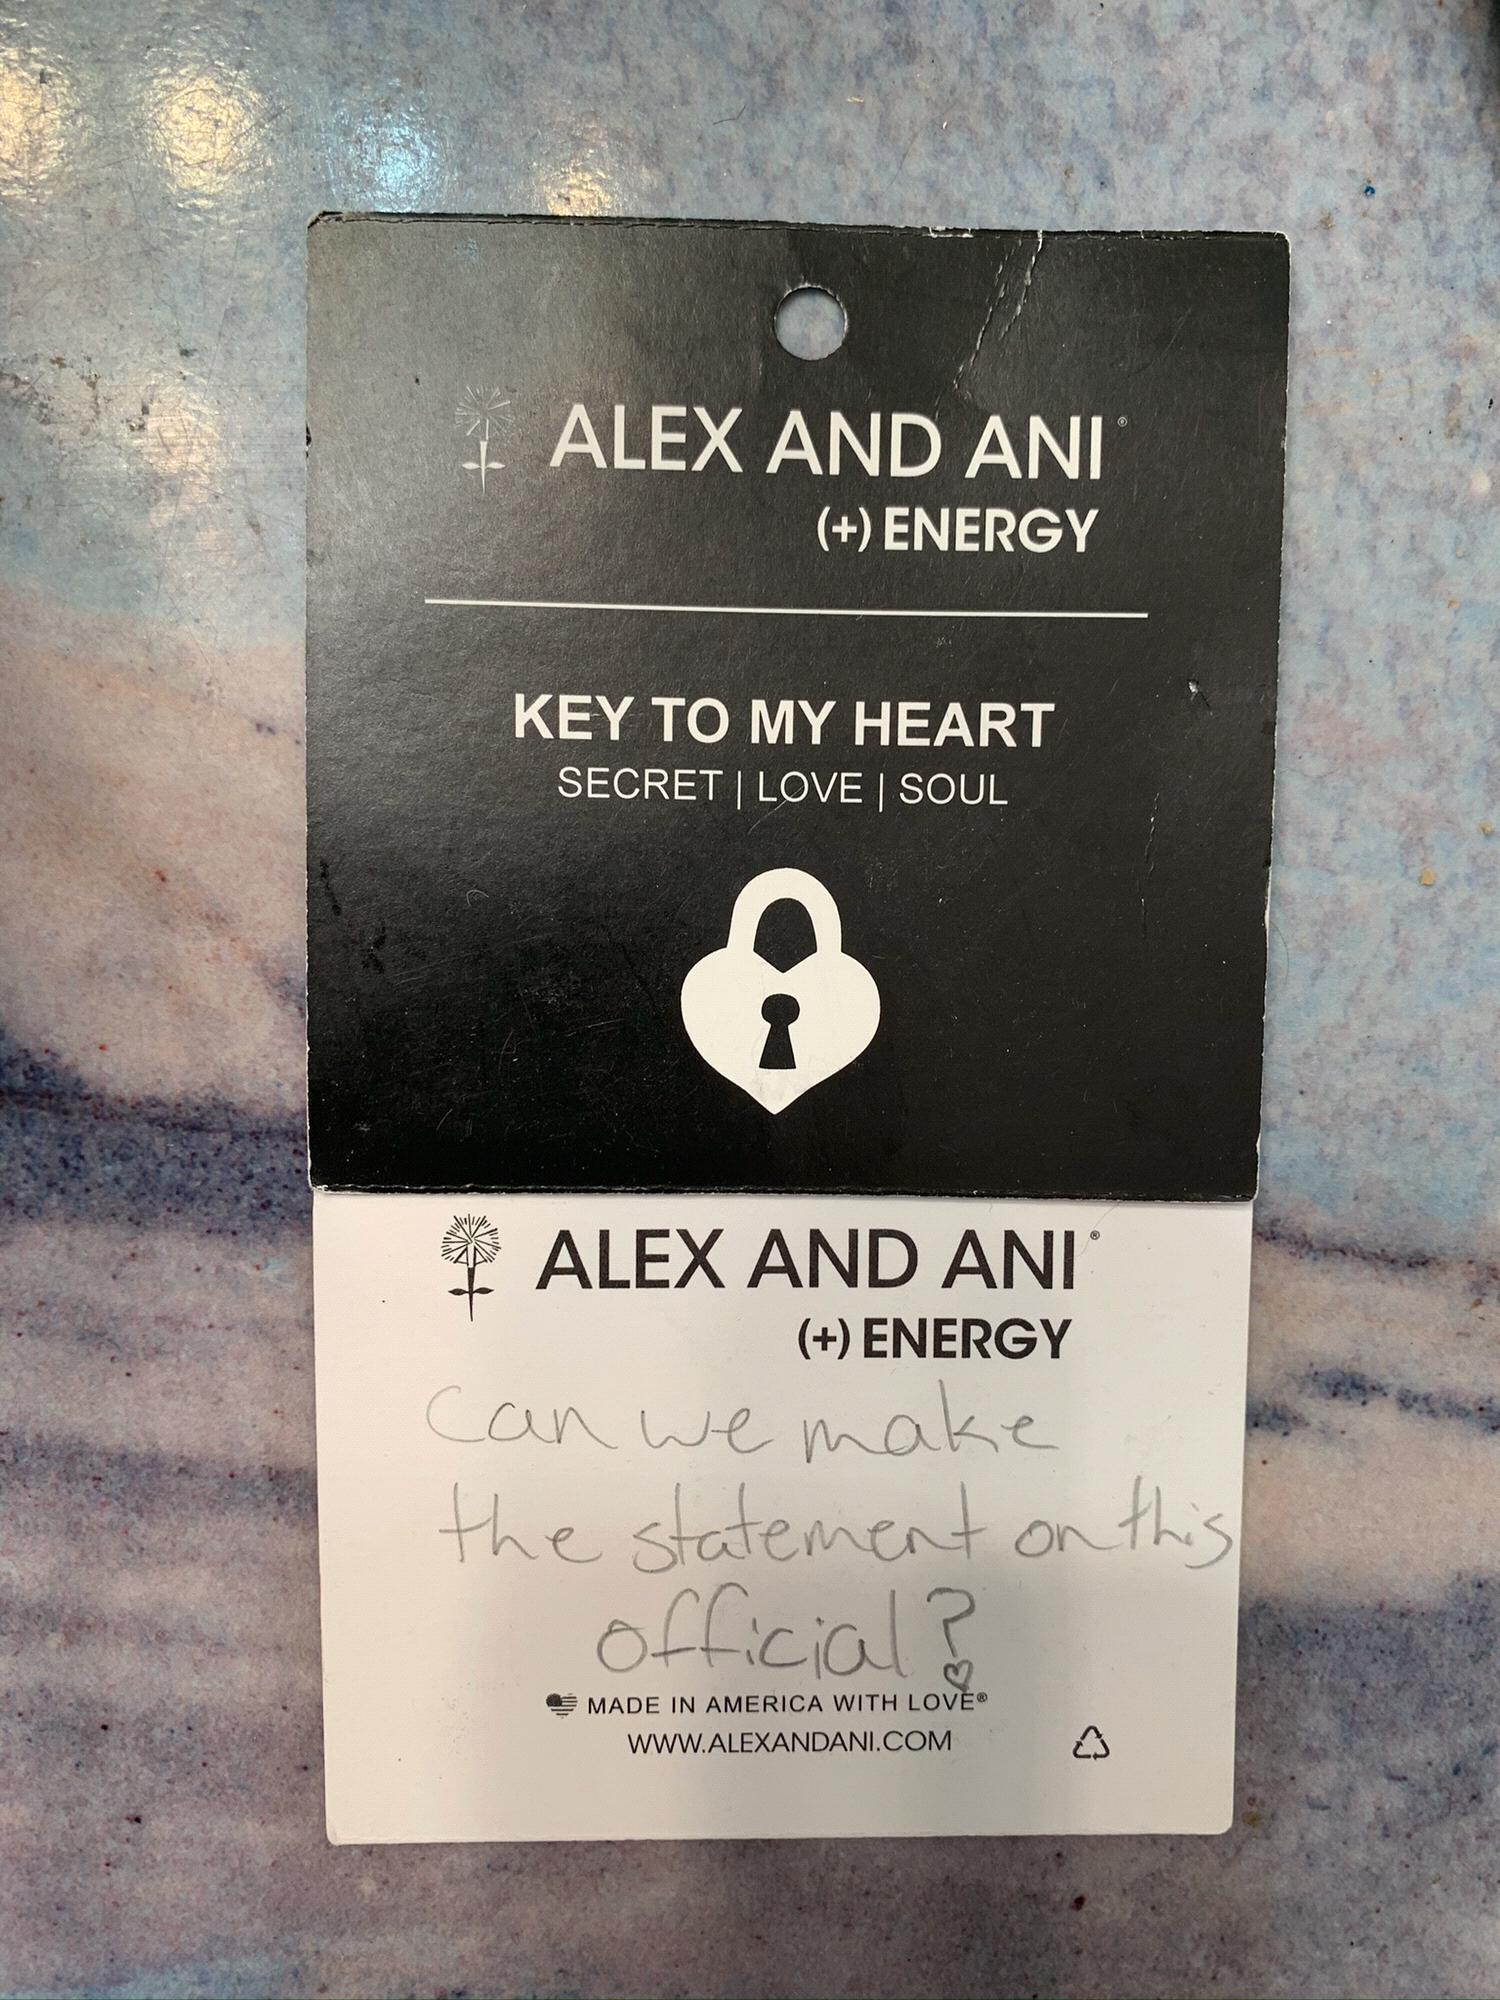 ALEX AND ANI®
(+) ENERGY
KEY TO MY HEART
SECRET | LOVE | SOUL
ALEX AND ANI®
(+) ENERGY
Can we make
the statement on this
official?
MADE IN AMERICA WITH LOVE®
WWW.ALEXANDANI.COM